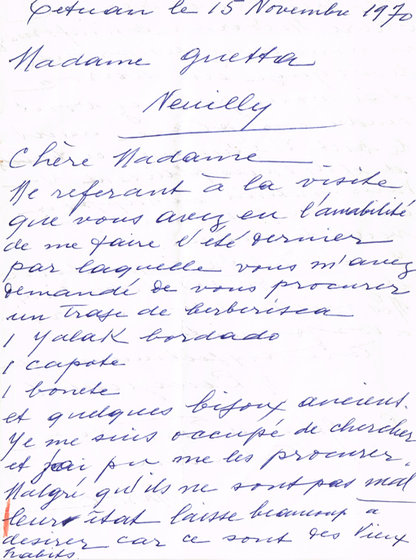 Tetuan le 15 Novembre 1970
Madame Guetta
Neuilly
Chère Madame
Me referant à la visite
que vous avez eu l'amabilité
de me faire l'été dernier
par laquelle vous m'avez
demandé de vous procurer
un traje de berberisca
1 Yalak bordado
1 capote
1 bonete
et quelques bijoux ancient.
Je me suis occupé de chercher
et j'ai pu me les procurer.
Malgré qu'ils ne sont pas mal
leur état laisse beaucoup à
desirer car ce sont des vieux
habits.